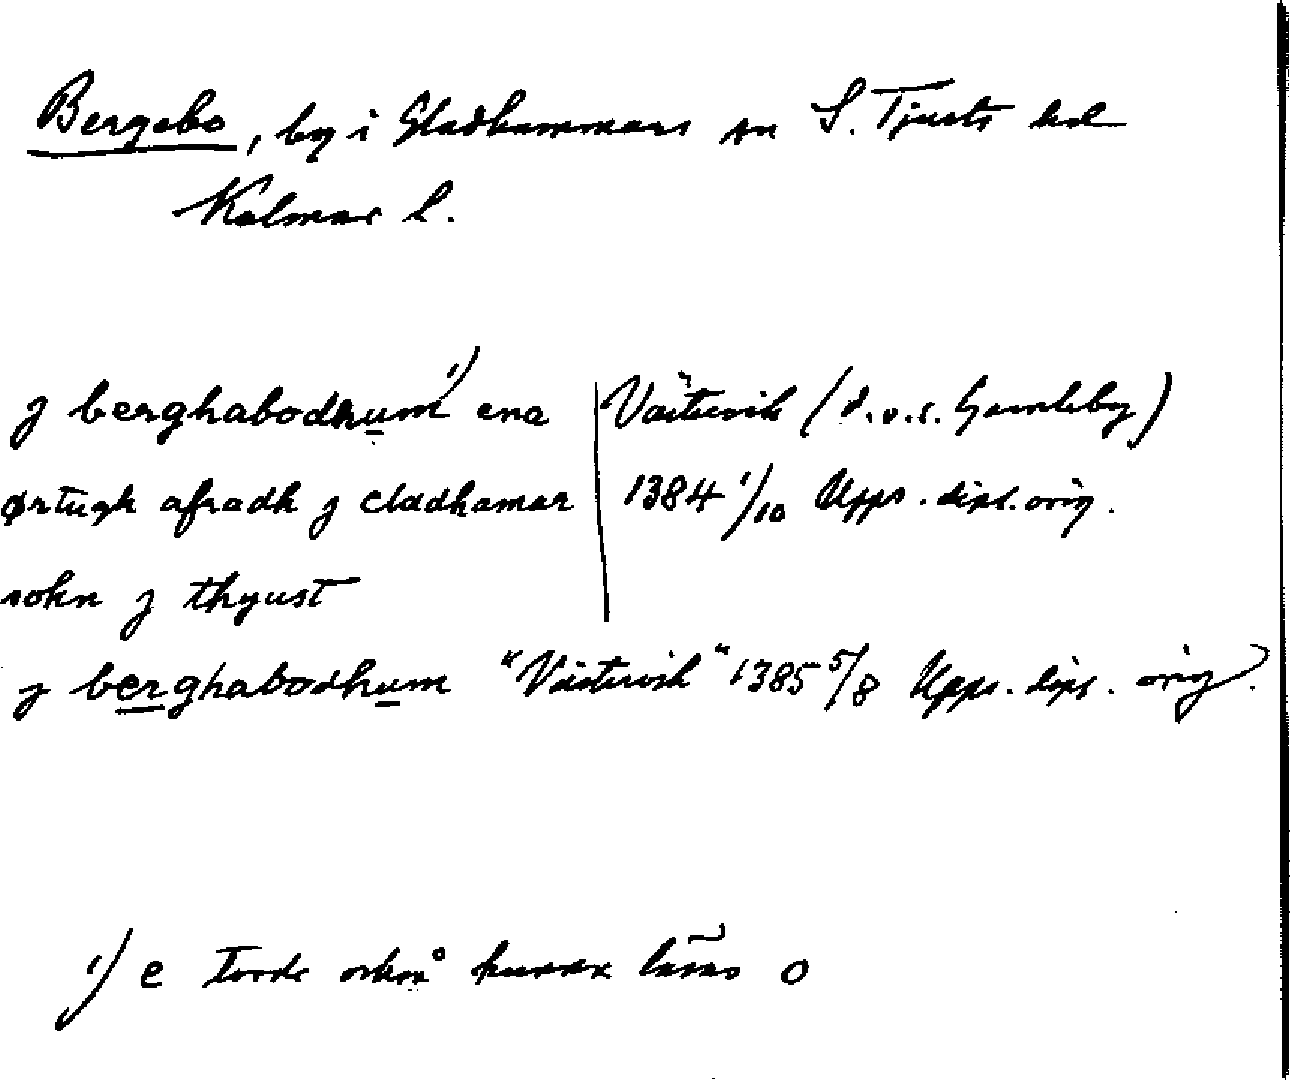 Bergebo, by i Gladhammars sn S. Tjusts hd
Kalmar l.
j berghabodhum ¹) ena
ørtugh afradh j cladhamar
sokn j thyust
Västervik (d.v.s. Gamleby)
1384 1/10 Upps. dipl. orig.
j berghabodhum "Västervik" 1385 5/8 Upps. dipl. orig.
¹) e torde också kunna läsas o